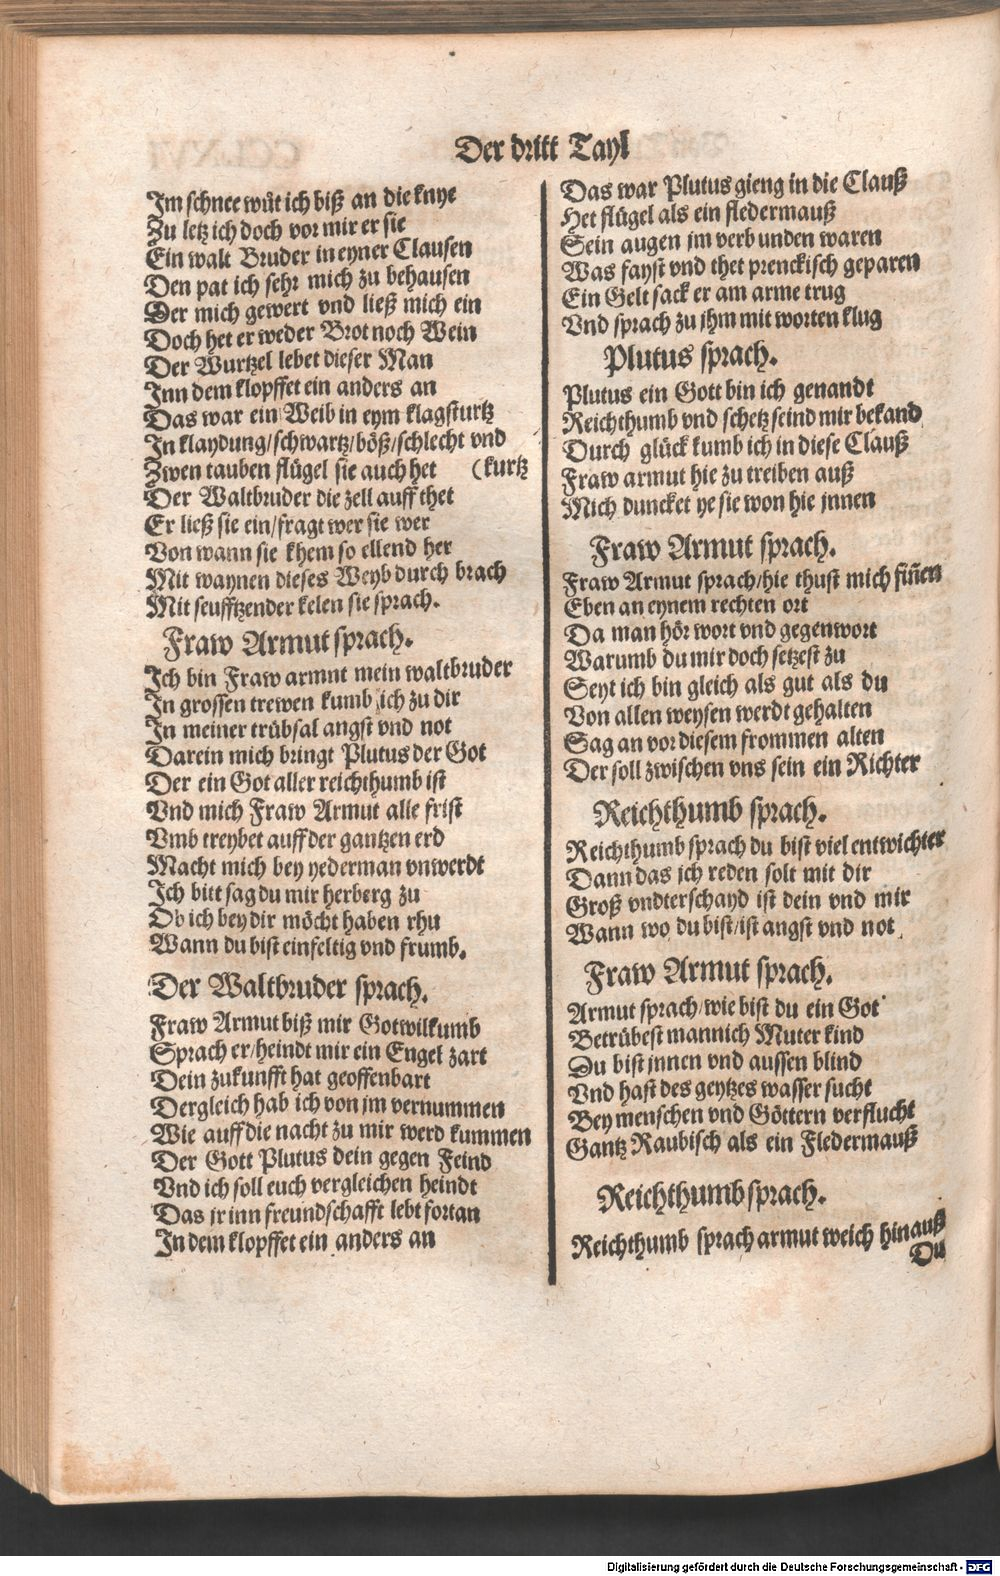 Der dritt Tayl
Im schnee wůt ich biß an die knye
Zu letz ich doch vor mir er sie
Ein walt Bruder in eyner Clausen
Den pat ich sehr mich zu behausen
Der mich gewert vnd ließ mich ein
Doch het er weder Brot noch Wein
Der Wurtzel lebet dieser Man
Inn dem klopffet ein anders an
Das war ein Weib in eym klagsturtz
In klaydung/schwartz/böß/schlecht vnd
Zwen tauben flügel sie auch het (kurtz
Der Waltbruder die zell auff thet
Er ließ sie ein/fragt wer sie wer
Von wann sie khem so ellend her
Mit waynen dieses Weyb durch brach
Mit seufftzender kelen sie sprach.
Fraw Armut sprach.
Ich bin Fraw armnt mein waltbruder
In grossen trewen kumb ich zu dir
In meiner trübsal angst vnd not
Darein mich bringt Plutus der Got
Der ein Got aller reichthumb ist
Vnd mich Fraw Armut alle frist
Vmb treybet auff der gantzen erd
Macht mich bey yederman vnwerdt
Ich bitt sag du mir herberg zu
Ob ich bey dir möcht haben rhu
Wann du bist einfeltig vnd frumb.
Der Waltbruder sprach.
Fraw Armut biß mir Gotwilkumb
Sprach er/heindt mir ein Engel zart
Dein zukunfft hat geoffenbart
Dergleich hab ich von jm vernummen
Wie auff die nacht zu mir werd kummen
Der Gott Plutus dein gegen Feind
Vnd ich soll euch vergleichen heindt
Das jr inn freundschafft lebt fortan
In dem klopffet ein anders an
Das war Plutus gieng in die Clauß
Het flügel als ein fledermauß
Sein augen jm verbunden waren
Was fayst vnd thet prenckisch geparen
Ein Gelt sack er am arme trug
Vnd sprach zu jhm mit worten klug
Plutus sprach.
Plutus ein Gott bin ich genandt
Reichthumb vnd schetz seind mir bekand
Durch glück kumb ich in diese Clauß
Fraw armut hie zu treiben auß
Mich duncket ye sie won hie jnnen
Fraw Armut sprach.
Fraw Armut sprach/hie thust mich fiñen
Eben an eynem rechten ort
Da man hör wort vnd gegenwort
Warumb du mir doch setzest zu
Seyt ich bin gleich als gut als du
Von allen weysen werdt gehalten
Sag an vor diesem frommen alten
Der soll zwischen vns sein ein Richter
Reichthumb sprach.
Reichthumb sprach du bist viel entwichter
Dann das ich reden solt mit dir
Groß vndterschayd ist dein vnd mir
Wann wo du bist/ist angst vnd not
Fraw Armut sprach.
Armut sprach/wie bist du ein Got
Betrübest mannich Muter kind
Du bist jnnen vnd aussen blind
Vnd hast des geytzes wasser sucht
Bey menschen vnd Göttern verflucht
Gantz Raubisch als ein Fledermauß
Reichthumb sprach.
Reichthumb sprach armut weich hinauß
Du
Digitalisierung gefördert durch die Deutsche Forschungsgemeinschaft - DFG